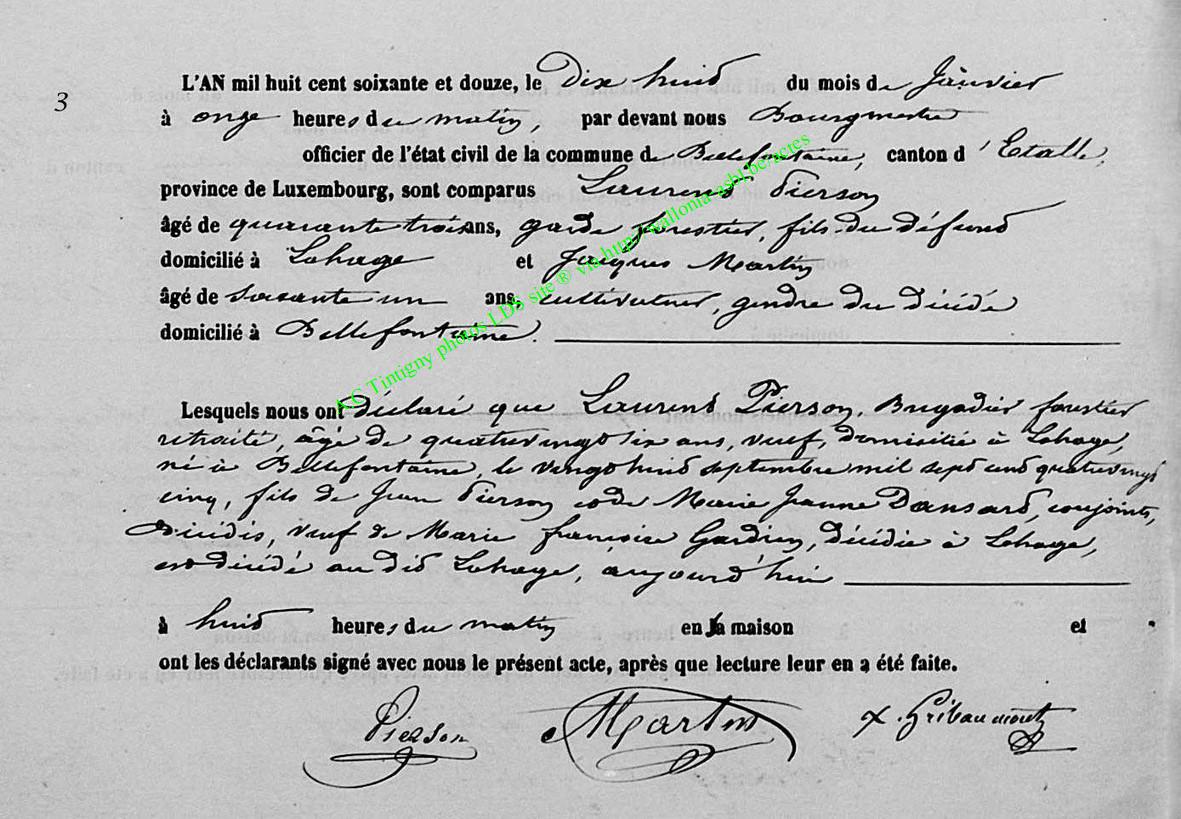 L'AN mil huit cent soixante et douze, le Dix huit du mois de Janvier
3
à onze heures du matin, par devant nous Bourgmestre
officier de l'état civil de la commune de Bellefontaine, canton d'Etalle,
province de Luxembourg, sont comparus Laurent Pierson
âgé de quarante trois ans, garde forestier, fils du défunt
domicilié à Lahage et Jacques Martin
âgé de soixante un ans, cultivateur, gendre du décédé
domicilié à Bellefontaine.
A.C Tintigny photos LDS site ® via http://wallonia-asbl.be/acres
Lesquels nous ont déclaré que Laurent Pierson, Brigadier forestier
retraité, âgé de quatrevingt six ans, veuf, domicilié à Lahage,
né à Bellefontaine, le vingt huit septembre mil sept cent quatrevingt
cinq, fils de Jean Pierson et de Marie Jeanne Dansard, conjoints,
Décédés, veuf de Marie françoise Gardien, décédée à Lahage,
est décédé au dit Lahage, aujourd'hui
à huit heures du matin en sa maison et
ont les déclarants signé avec nous le présent acte, après que lecture leur en a été faite.
Pierson Martin X. Gribaumont